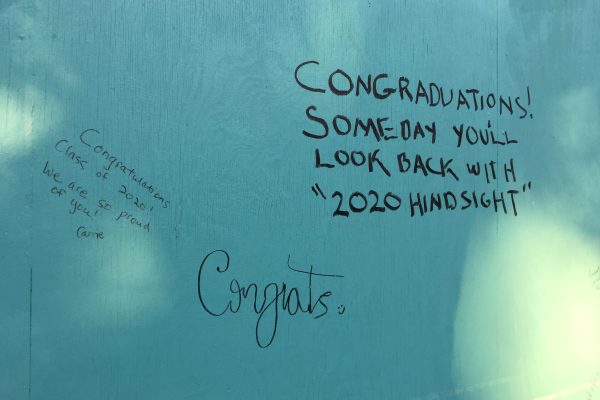 CONGRADUATIONS!
SOMEDAY YOU'LL
LOOK BACK WITH
"2020 HINDSIGHT"
Congratulations
Class of 2020!
We are so proud
of you!
Congrats :)